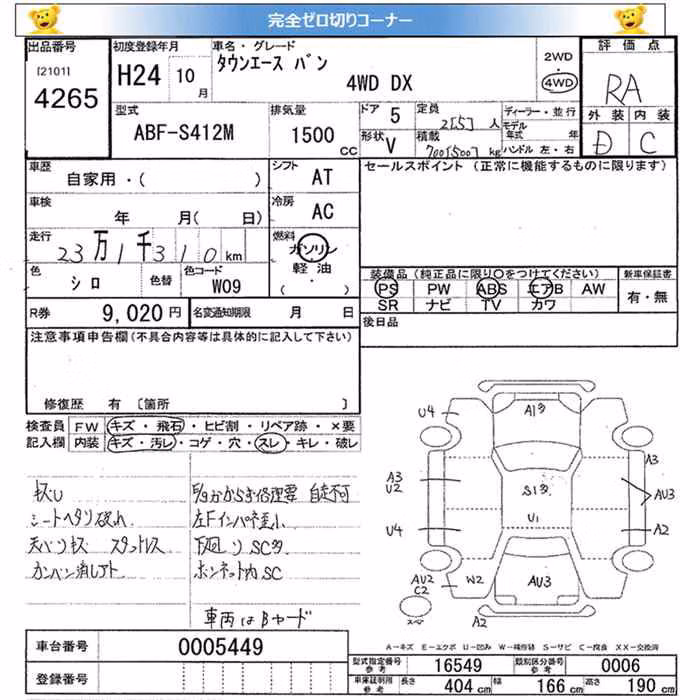 完全ゼロ切りコーナー
出品番号
[2101]
4265
初度登録年月
H24 10 月
車名・グレード
タウンエース バン
4WD DX
2WD
4WD
評価点
RA
外装 内装
D C
型式
ABF-S412M
排気量
1500 CC
ドア 5
形状 V
定員
2[5] 人
積載
700[500] kg
ディーラー・並行
モデル年式 年
ハンドル 左・右
車歴
自家用・( )
シフト
AT
セールスポイント (正常に機能するものに限ります)
車検
年 月( 日)
冷房
AC
走行
23万1千310 km
燃料
ガソリン
軽油
( ・ )
色
シロ
色替
色コード
W09
装備品(純正品に限り○をつけてください)
PS PW ABS エアB AW
SR ナビ TV カワ
新車保証書
有・無
R券 9,020 円
名変通知期限 月 日
後日品
注意事項申告欄(不具合内容等は具体的に記入して下さい)
修復歴 有 [箇所 ]
検査員記入欄
FW キズ・飛石・ヒビ割・リペア跡・×要
内装 キズ・汚レ・コゲ・穴・スレ・キレ・破レ
シートヘタリ破れ
天バリキズ スタットレス
カンバン消しアト
左Fインパネ歪小
下廻りSC多
ボンネット内SC
車両はBヤード
U4
A1多
A3
U2
S1多
A3
AU3
U4
U1
A2
AU2
C2
W2
AU3
スペア
A2
A-キズ E-エクボ U-凹み W-補修跡 S-サビ C-腐食 XX-交換済
車台番号 0005449
登録番号
型式指定番号 参考 16549
類別区分番号 参考 0006
車庫証明用 参考 長さ 404 cm 幅 166 cm 高さ 190 cm